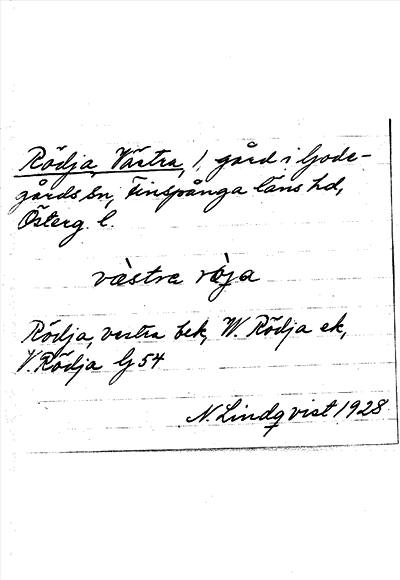 Rödja, Västra, 1, gård i Gode-
gårds sn, Finspånga läns hd,
Österg. l.
västra ròja
Rödja, vestra bek, W. Rödja ek,
V. Rödja Gj 54
N. Lindqvist 1928